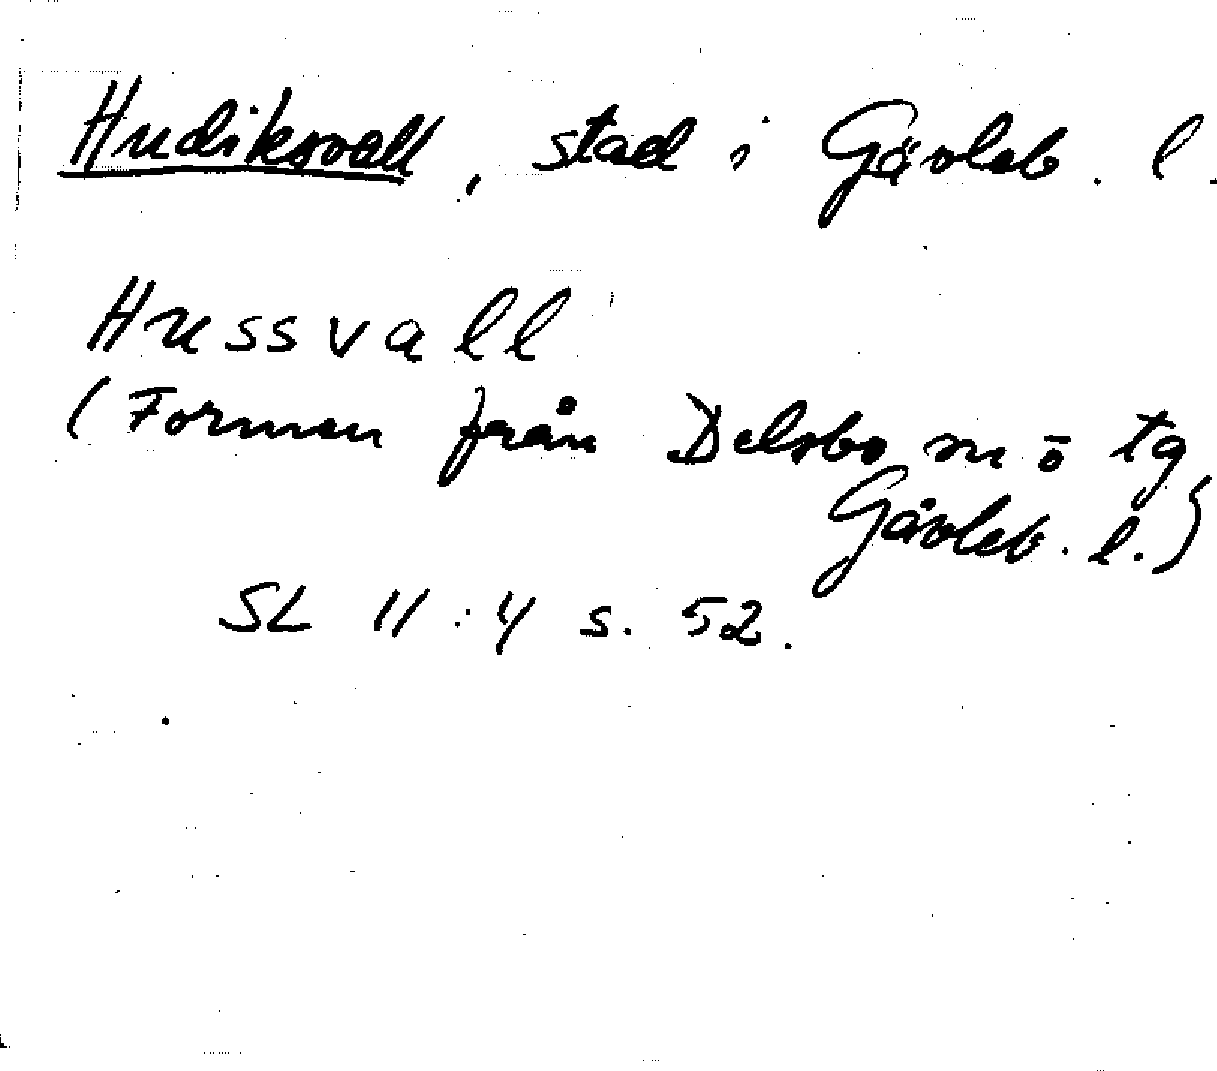 Hudiksvall, stad i Gävleb. l.
Hussvall
(Formen från Delsbo m ö tg
Gävleb. l.)
SL 11:4 s. 52.